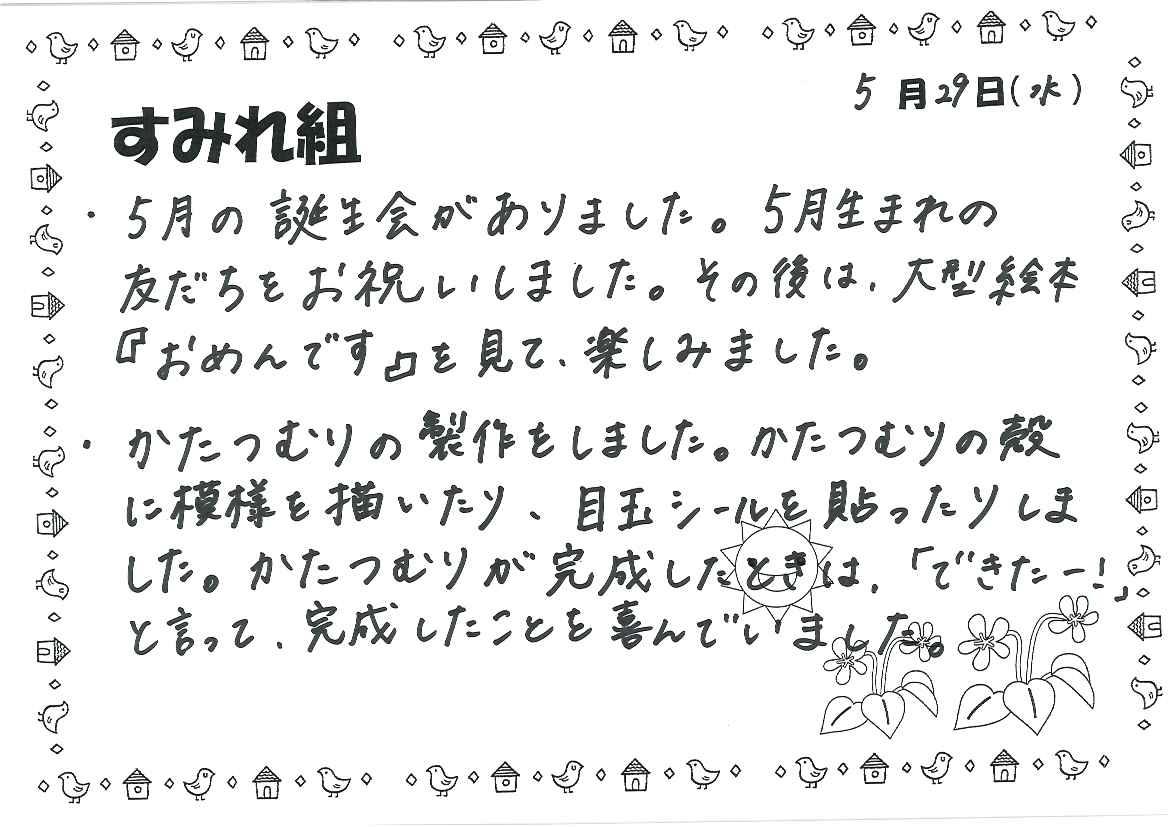 5月29日(水)
すみれ組
・5月の誕生会がありました。5月生まれの
友だちをお祝いしました。その後は、大型絵本
『おめんです』を見て、楽しみました。
・かたつむりの製作をしました。かたつむりの殻
に模様を描いたり、目玉シールを貼ったりしま
した。かたつむりが完成したときは、「できたー!」
と言って、完成したことを喜んでいました。